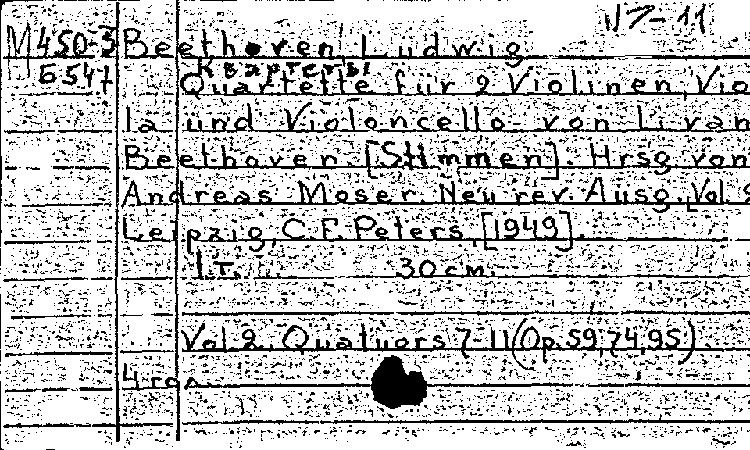 N 7-11
M 450-3 Beethoven Ludwig
Б 547 Квартеты
Quartette für 2 Violinen, Vio
la und Violoncello von L. van
Beethoven. [Stimmen]. Hrsg. von
Andreas Moser. Neu rev. Ausg. Vol. 2
Leipzig, C. F. Peters, [1949].
1 т. 30 cm.
Vol. 2. Quatuors 7-11 (Op. 59, 74, 95)